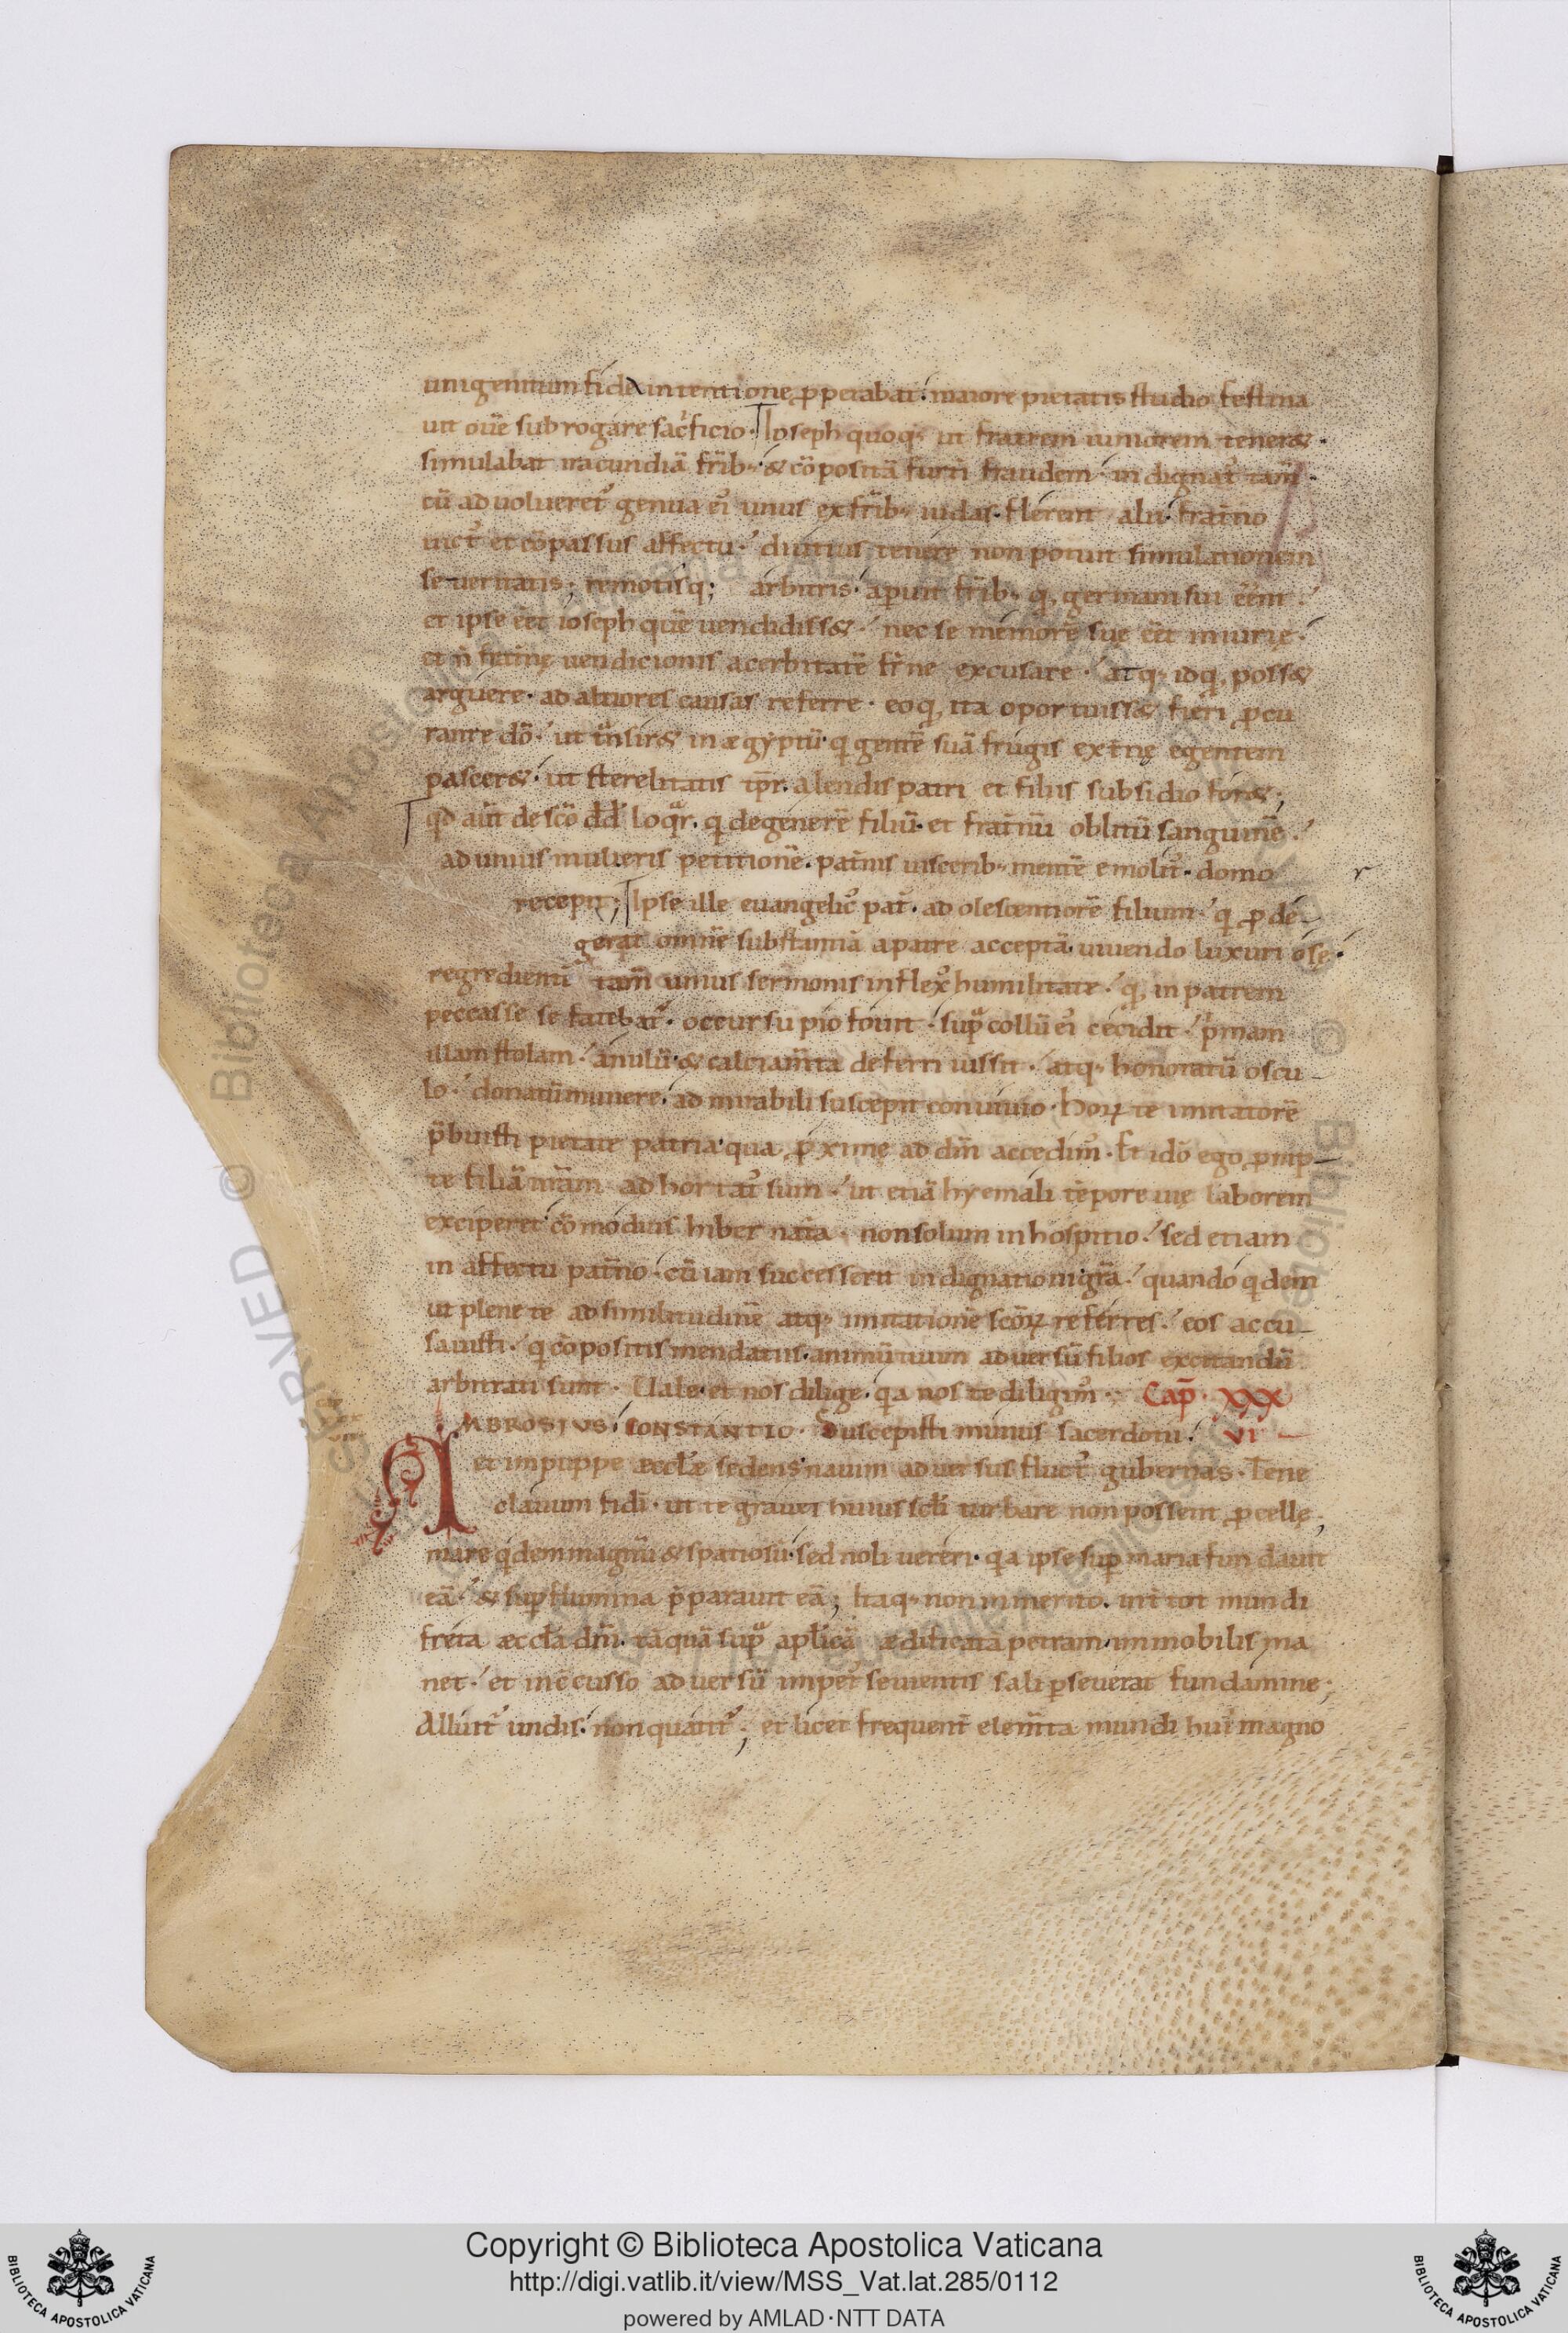 unigenitum fide intentione ꝓperabat. maiore pietatis studio festina
uit oue͂ sub rogare sacrͥficio. Ioseph quoq; ut fratrem iuniorem tener&.
simulabat iracundiā fr̄ib; & cōpositā furti fraudem. indignat᷒ tam̄.
cū aduolueret᷒ genua ei᷒ unus ex fr̄ib; iudas. flerent alii. frat̄no
uict᷒ et cōpassus affectu. diutius tenere non potuit simulationem
seueritatis; remotisq; arbitris. aperuit fr̄ib; q̧ germani sui eēnt.
et ipse eēt ioseph quē uendidiss&. nec se memorē suę eēt iniurię.
et n̄ frat̄nę uendicionis acerbitatē fr̄ne excusare. atq; idq̧ poss&
arguere. ad altiores causas referre. eo q̧ ita oportuiss& fieri ꝓcu
rante dō. ut transir& in ægyptū. qͥ gentē suā frugis ext̄nę egentem
pascer&. ut sterelitatis tp̄r. alendis patri et filiis subsidio for&;
qd aūt de sc̄o dd̄ loqͣr. qͥ degenerē filiū. et frat̄nū oblitū sanguinē.
ad unius mulieris petitionē. pat̄nis uiscerib; mente emolit᷒. domo
recepit; Ipse ille euangelic᷒ pat᷒. adolescentiorē filium. qͥ ꝓde
gerat omnē substantiā a patre acceptā uiuendo luxuriose.
regredientē tam̄ unius sermonis inflex᷒ humilitate. q̧ in patrem
peccasse se fatebat᷒. occursu pio fouit. supͣ collū ei᷒ cecidit. pͥmam
illam stolam. anulū & calciam̄ta deferri iussit. atq; honoratū oscu-
lo. donatū munere. admirabili suscepit conuiuio. Horꝝ te imitatorē
p̄buisti pietate patria. qua ꝓxime ad dm̄ accedim᷒. Et idō ego ꝓmp-
te filiā nr̄am adhortat᷒ sum. ut etiā hyemali tēpore uię laborem
exciperet. cōmodius hibernat̄a. non solum in hospitio. sed etiam
in affectu pat̄no. cū iam successerit indignationi gr̄a. quando qͥdem
ut plene te ad similitudinē atq; imitationē sc̄orꝝ referres. eos accu-
sauisti. qͥ cōpositis mendatiis. animū tuum aduersū filios excitandū
arbitrati sunt. Uale. et nos dilige. qͥa nos te diligim᷒. Cap̄. XXX
AMBROSIUS. CONSTANTIO. Suscepisti munus sacerdotii. VI
et in puppe æccl̄æ sedens. nauim aduersus fluct᷒ gubernas. Tene
clauum fidi. ut te graues huius scl̄i turbare non possent ꝓcellę.
mare qͥdem magnū & spatiosū. sed noli uereri. qͥa ipse sup̄ maria fundauit
eā. & sup̄ flumina p̄parauit eā; Itaq; non inmerito. int̄ tot mundi
freta æccl̄a dn̄i. tāquā supͣ apl̄icā ædificata petram. inmobilis ma
net. et inc̄cusso aduersū impet᷒ seuientis sali perseuerat fundamine;
Alluit᷒ undis. non quatit᷒; et licet frequent̄ elem̄ta mundi hui᷒ magno
r
Copyright © Biblioteca Apostolica Vaticana
http://digi.vatlib.it/view/MSS_Vat.lat.285/0112
powered by AMLAD·NTT DATA
BIBLIOTECA APOSTOLICA VATICANA
BIBLIOTECA APOSTOLICA VATICANA